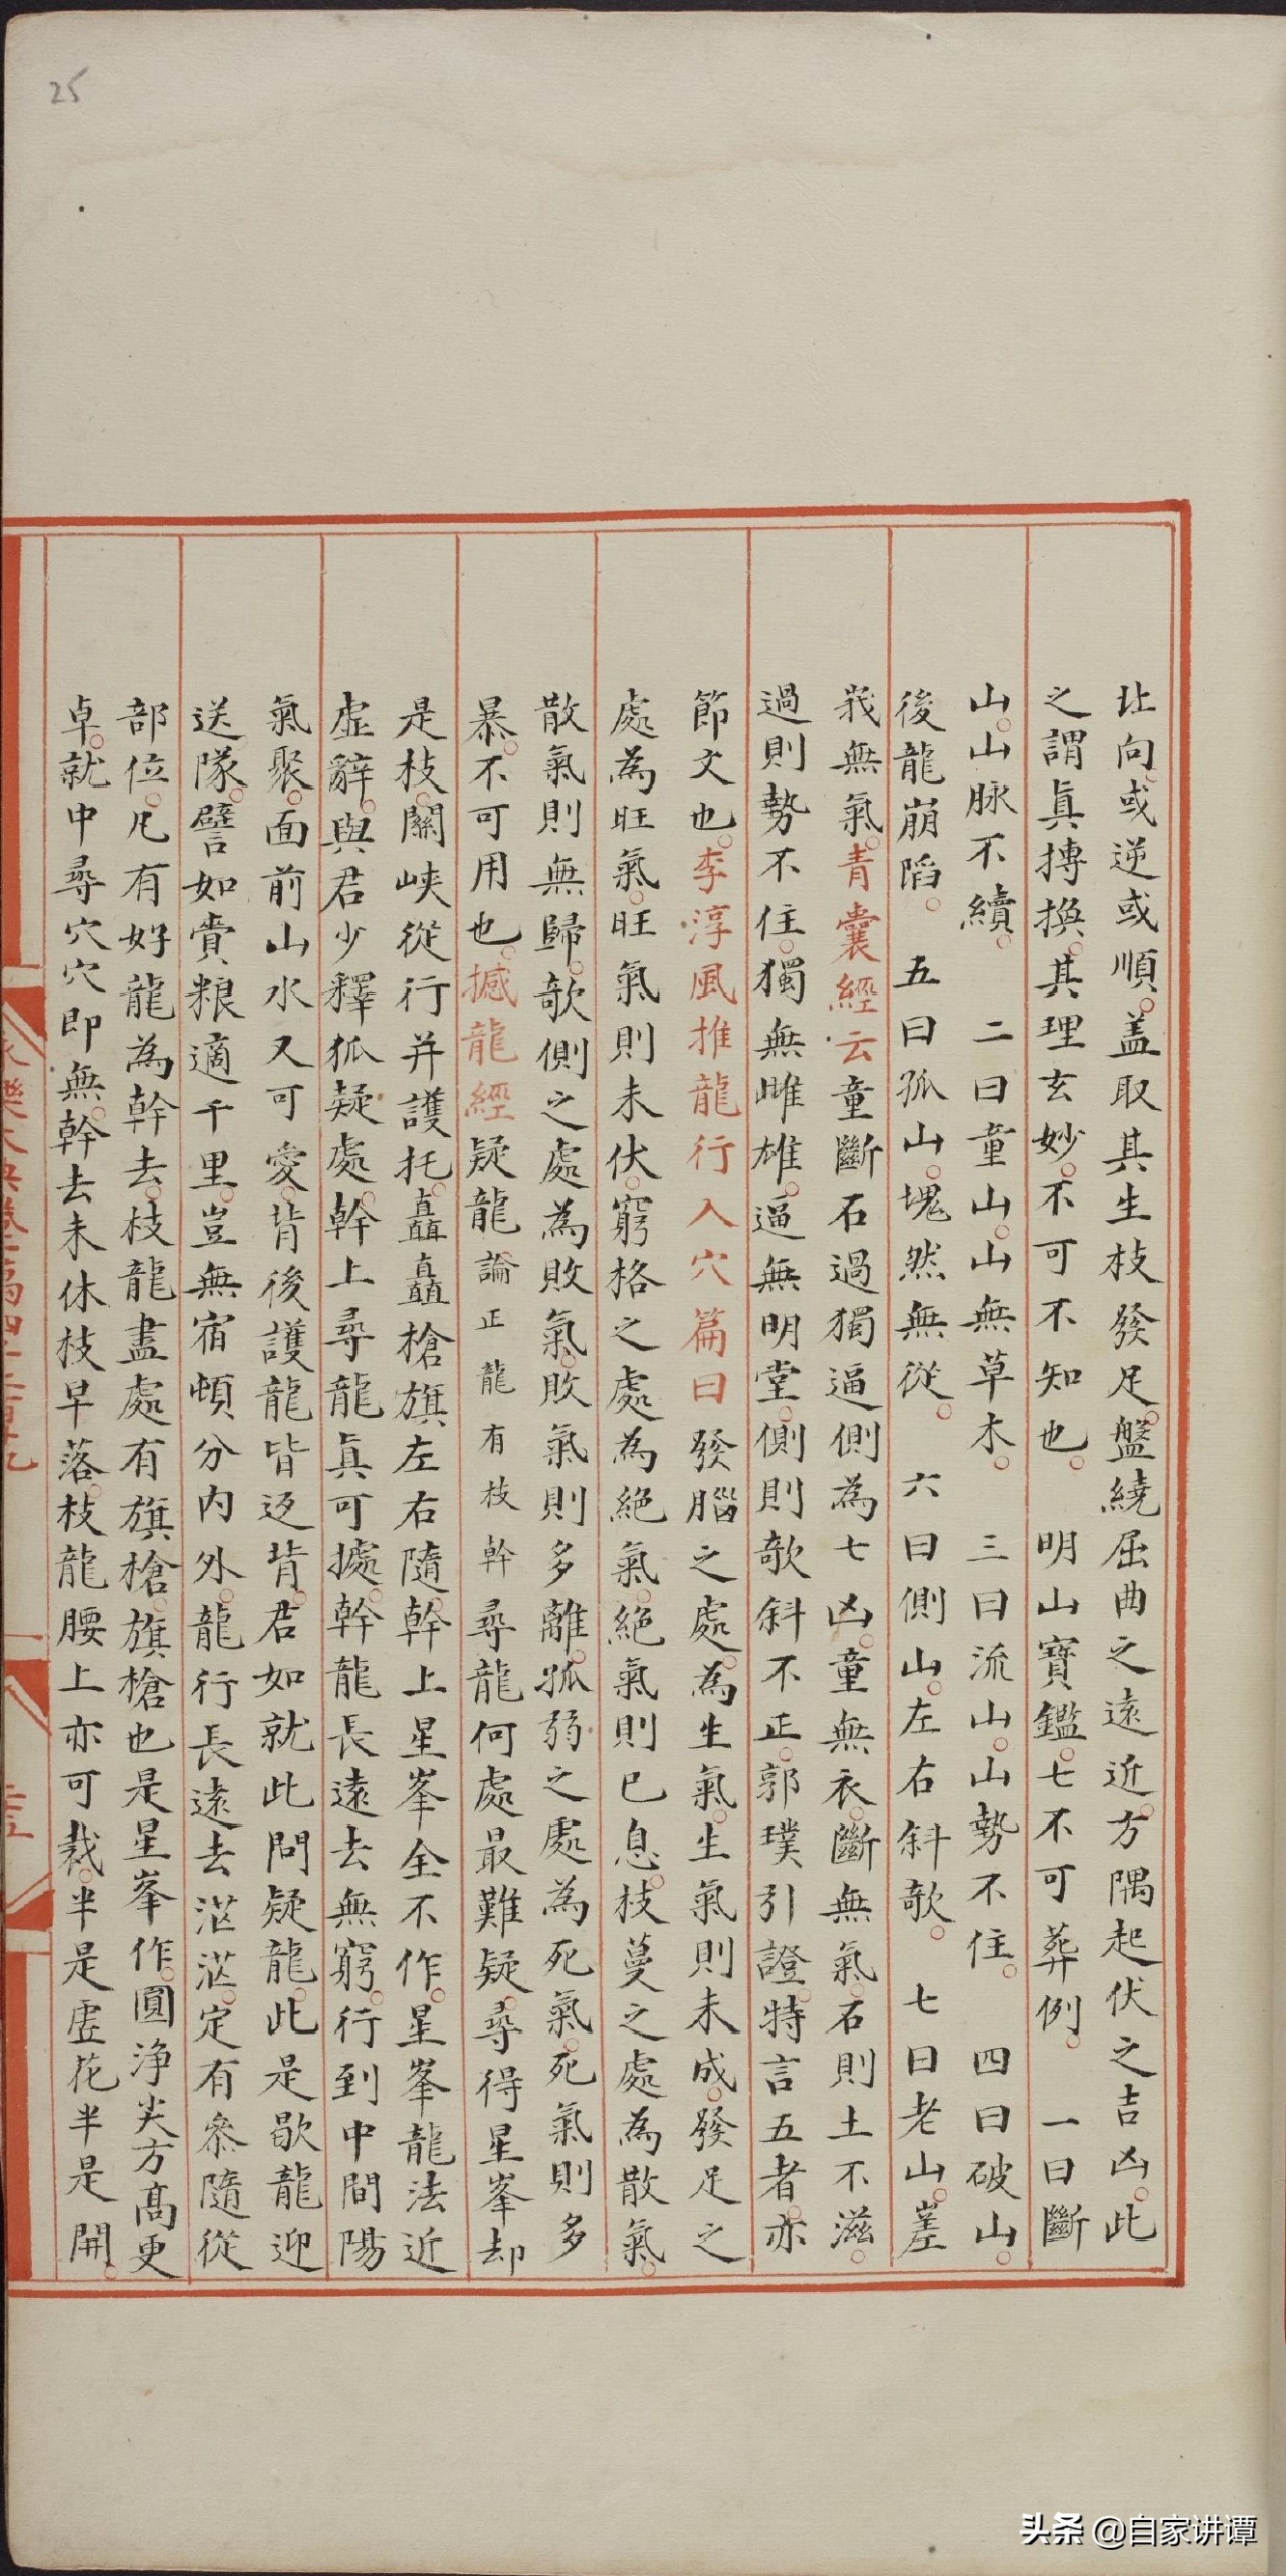 25
北向或逆或順。盖取其生枝發足。盤繞屈曲之遠近。方隅起伏之吉凶。此
之謂眞摶換。其理玄妙。不可不知也。 明山寶鑑。七不可葬例。 一曰斷
山。山脉不續。 二曰童山。山無草木。 三曰流山。山勢不住。 四曰破山。
後龍崩陷。 五曰孤山。塊然無從。 六曰側山。左右斜欹。 七曰老山。嵳
峩無氣。青囊經云童斷石過獨逼側為七凶。童無衣。斷無氣。石則土不滋。
過則勢不住。獨無雌雄。逼無明堂。側則欹斜不正。郭璞引證。特言五者。亦
節文也。李淳風推龍行入穴篇曰發腦之處。為生氣。生氣則未成。發足之
處為旺氣。旺氣則未伏。窮格之處為絕氣。絕氣則已息。枝蔓之處為散氣。
散氣則無歸。欹側之處為敗氣。敗氣則多離。孤弱之處為死氣。死氣則多
暴。不可用也。撼龍經疑龍論正龍有枝幹尋龍何處最難疑。尋得星峯却
是枝。關峽從行并護托。矗矗槍旗左右隨。幹上星峯全不作。星峯龍法近
虛辭。與君少釋狐疑處。幹上尋龍眞可據。幹龍長遠去無窮。行到中間陽
氣聚。面前山水又可愛。背後護龍皆迓背。君如就此問疑龍。此是歇龍迎
送隊。譬如賫粮適千里。豈無宿頓分內外。龍行長遠去茫茫。定有叅隨從
部位。凡有好龍為幹去。枝龍盡處有旗槍。旗槍也是星峯作。圓淨尖方髙更
卓。就中尋穴穴即無。幹去未休枝早落。枝龍腰上亦可裁。半是虛花半是開。
头条 @自家讲谭